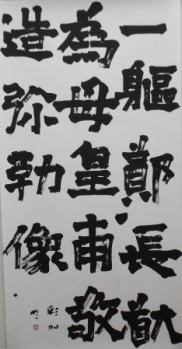 一軀鄭長猷
為母皇甫敬
造弥勒像